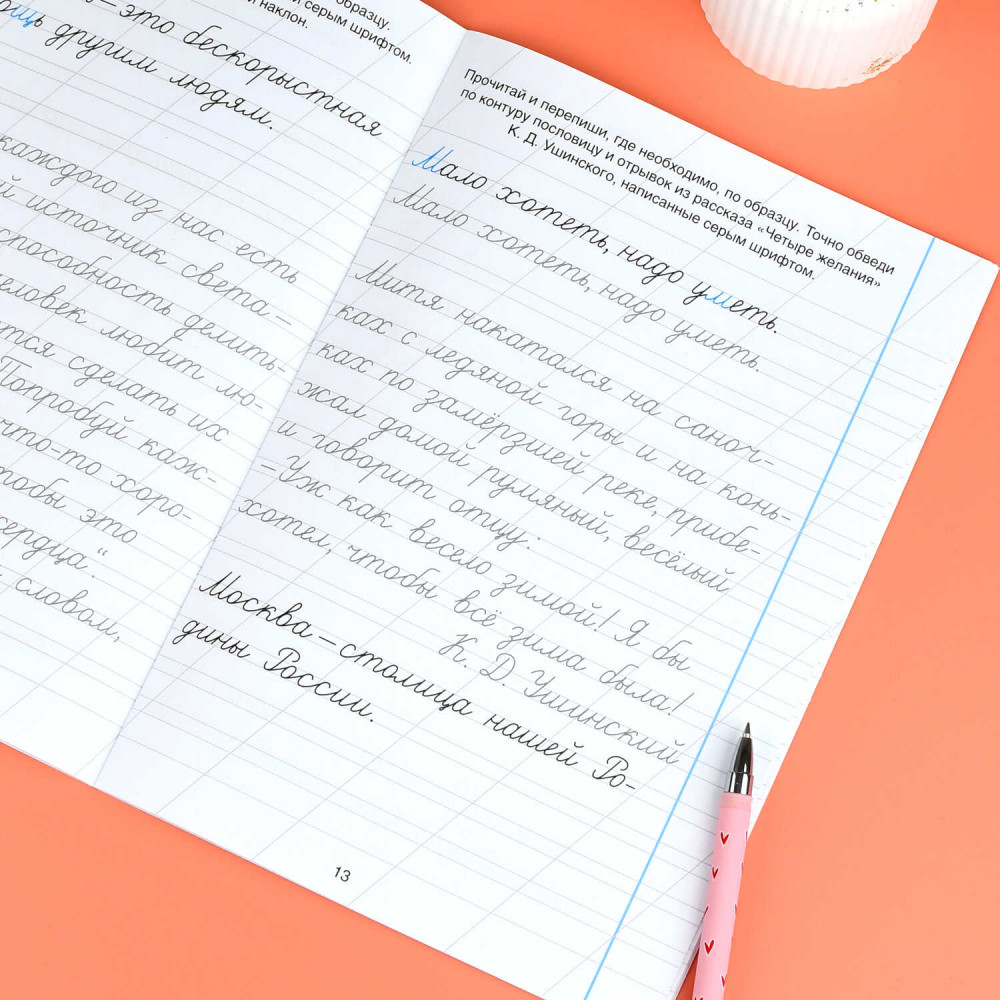 образцу.
й серым шрифтом.
й наклон.
— это бескорыстная
ощь другим людям.
каждого из нас есть
й источник света —
способность делить-
человек любит лю-
ется сделать их
Попробуй каж-
что-то хоро-
чтобы это
сердца."
словом,
Прочитай и перепиши, где необходимо, по образцу. Точно обведи
по контуру пословицу и отрывок из рассказа «Четыре желания»
К. Д. Ушинского, написанные серым шрифтом.
Мало хотеть, надо уметь.
Мало хотеть, надо уметь.
Митя накатался на саноч-
ках с ледяной горы и на конь-
ках по замёрзшей реке, прибе-
жал домой румяный, весёлый
и говорит отцу:
– Уж как весело зимой! Я бы
хотел, чтобы всё зима была!
К. Д. Ушинский
Москва – столица нашей Ро-
дины России.
13